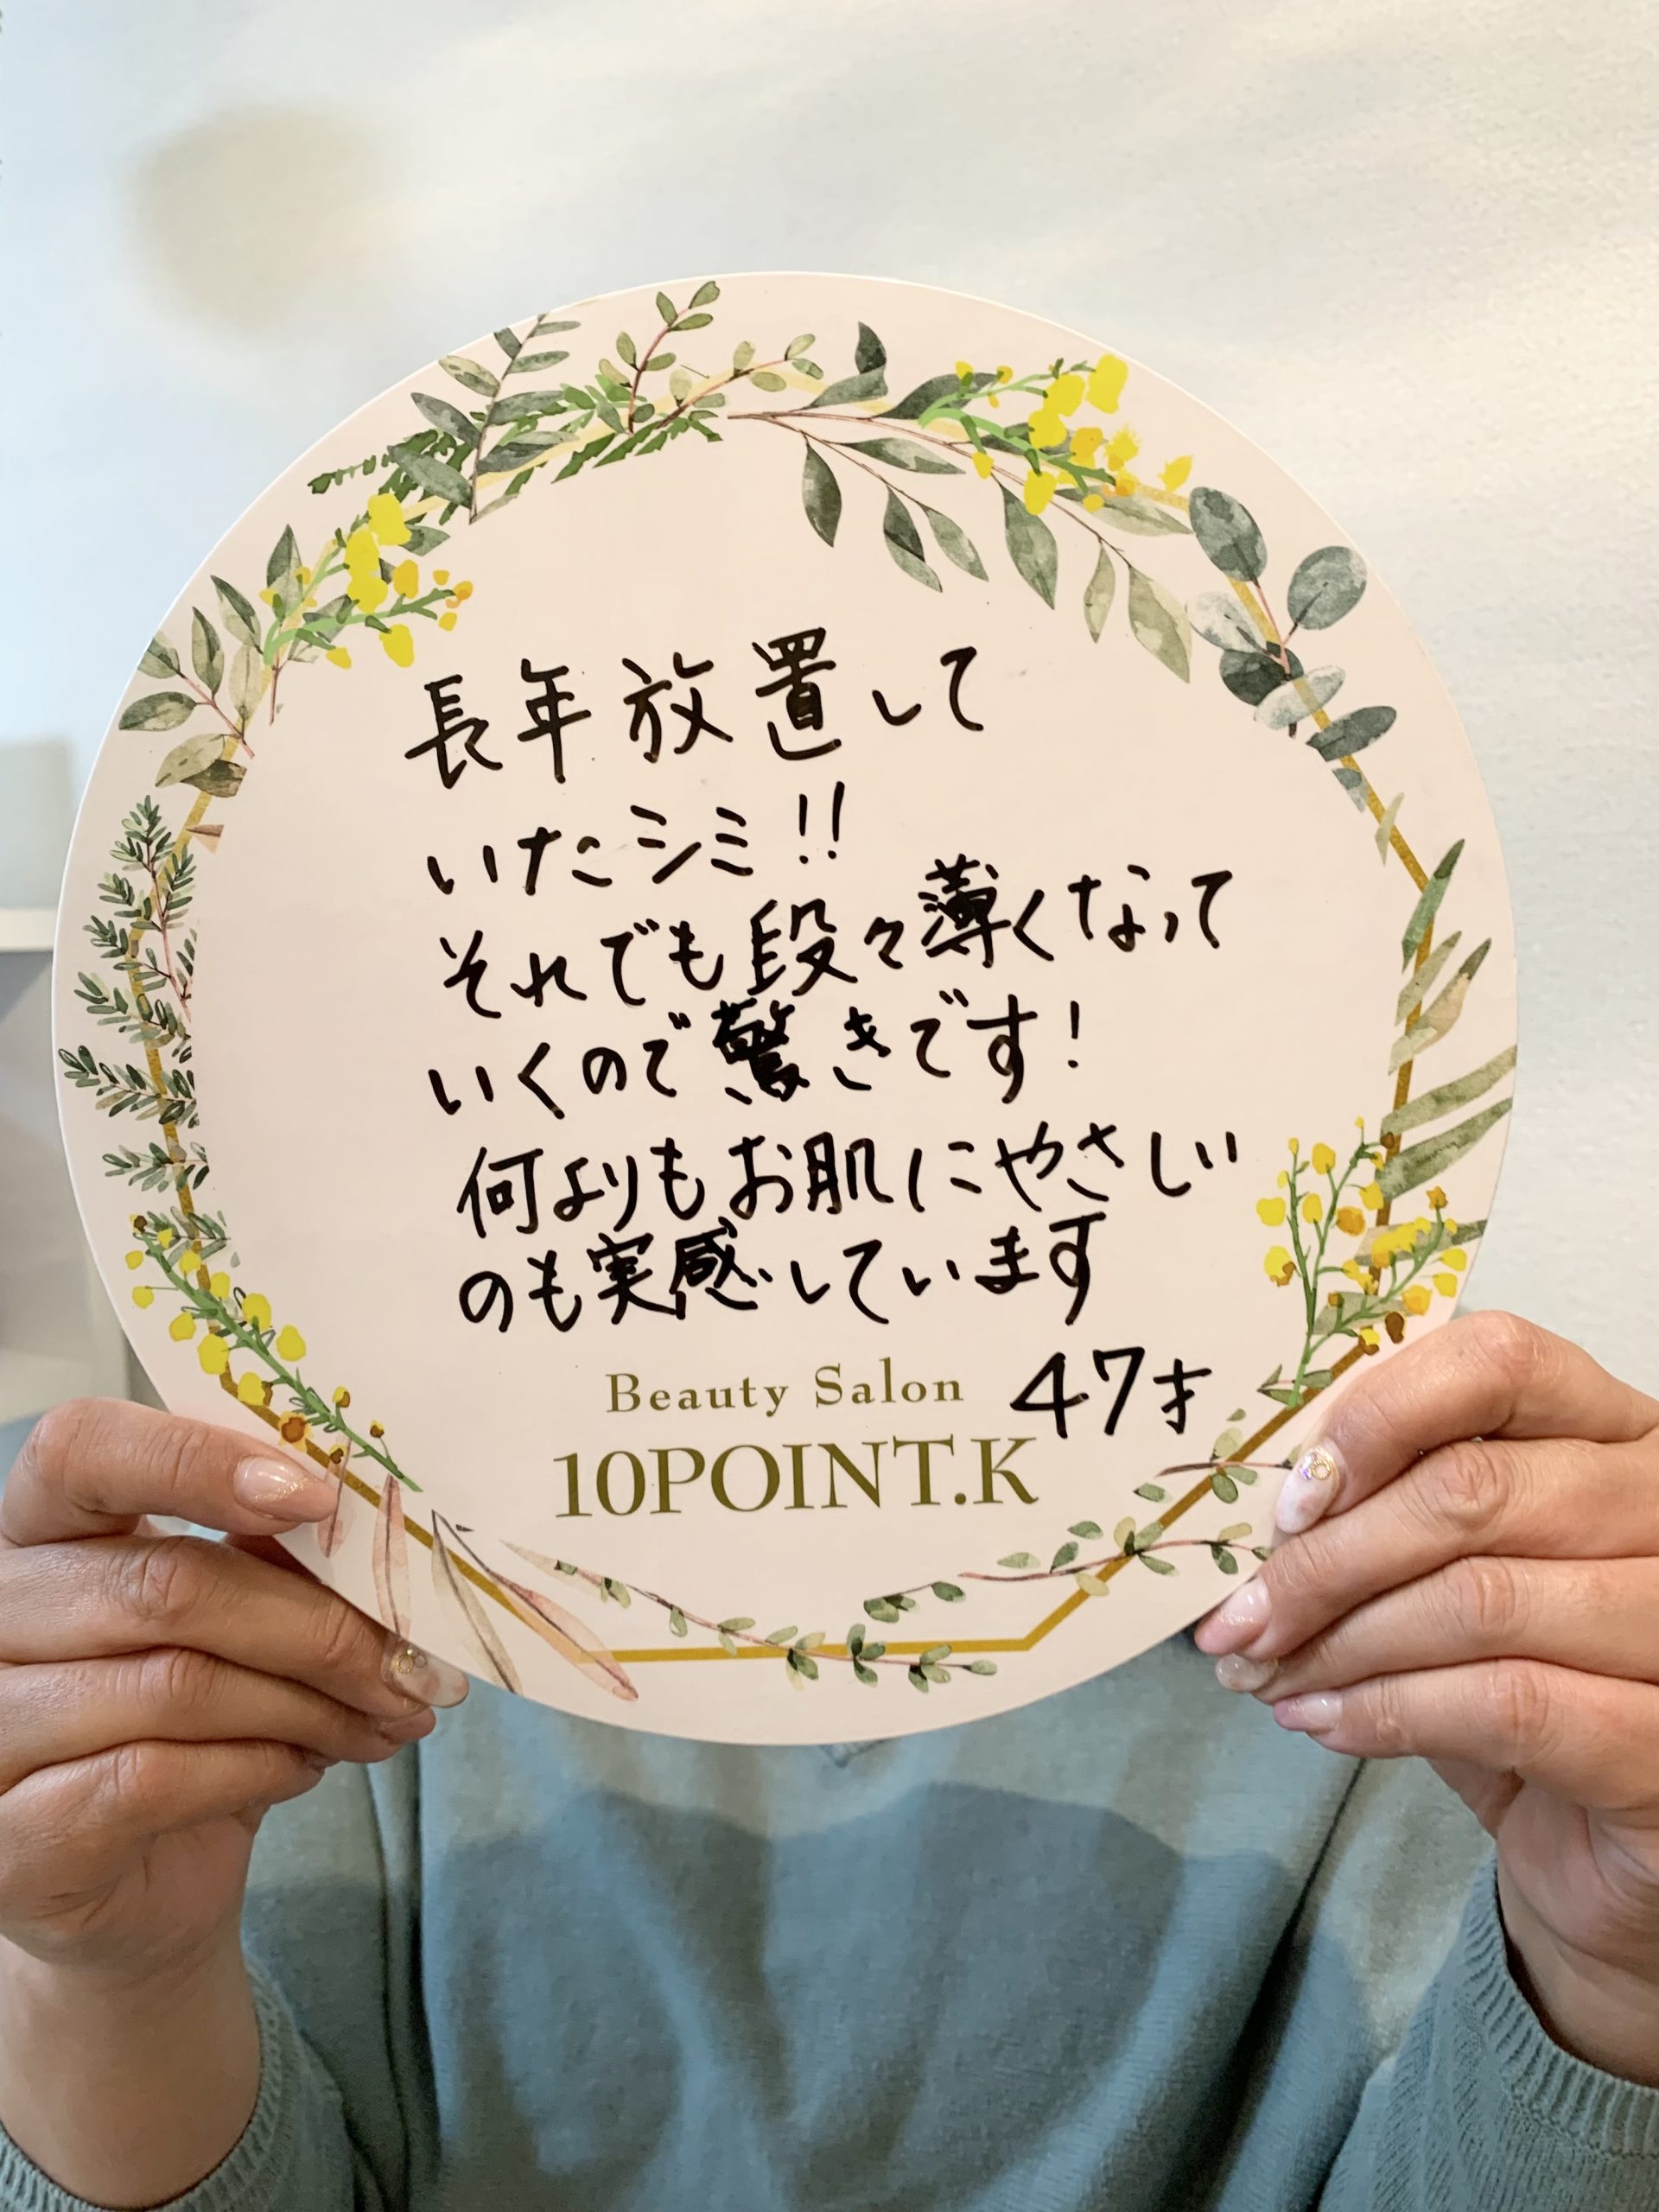 長年放置して
いたシミ!!
それでも段々薄くなって
いくので驚きです!
何よりもお肌にやさしい
のも実感しています
47才
Beauty Salon
10POINT.K